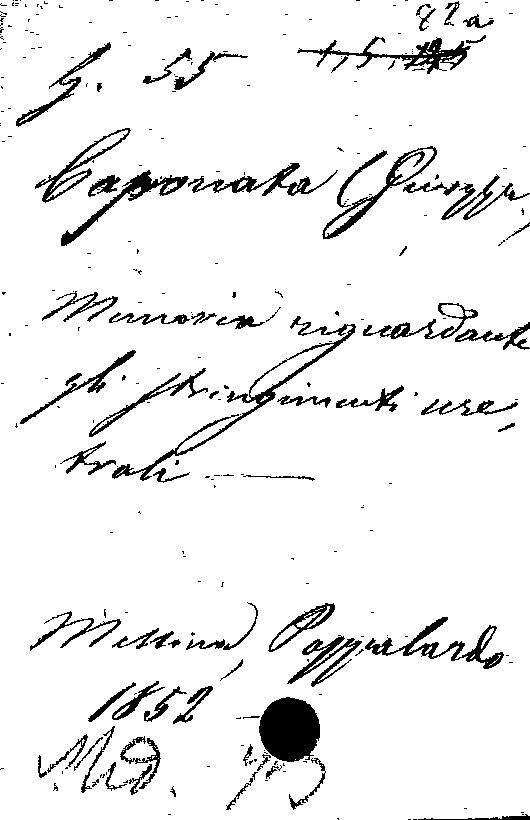 82a
G. 55
Caponata (Giuseppe)
Memoria riguardante
gli stringimenti ure,
trali —
Messina, Pappalardo
1852
Med.